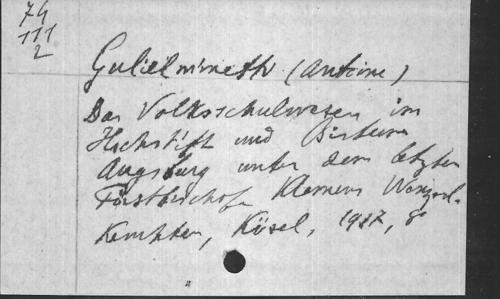 74
111
2
Gulielminetti (Antoine)
Das Volksschulwesen im
Hochstift und Bistum
Augsburg unter dem letzten
Fürstbischofe Klemens Wenzesl.
Kempten, Kösel, 1912, 8°